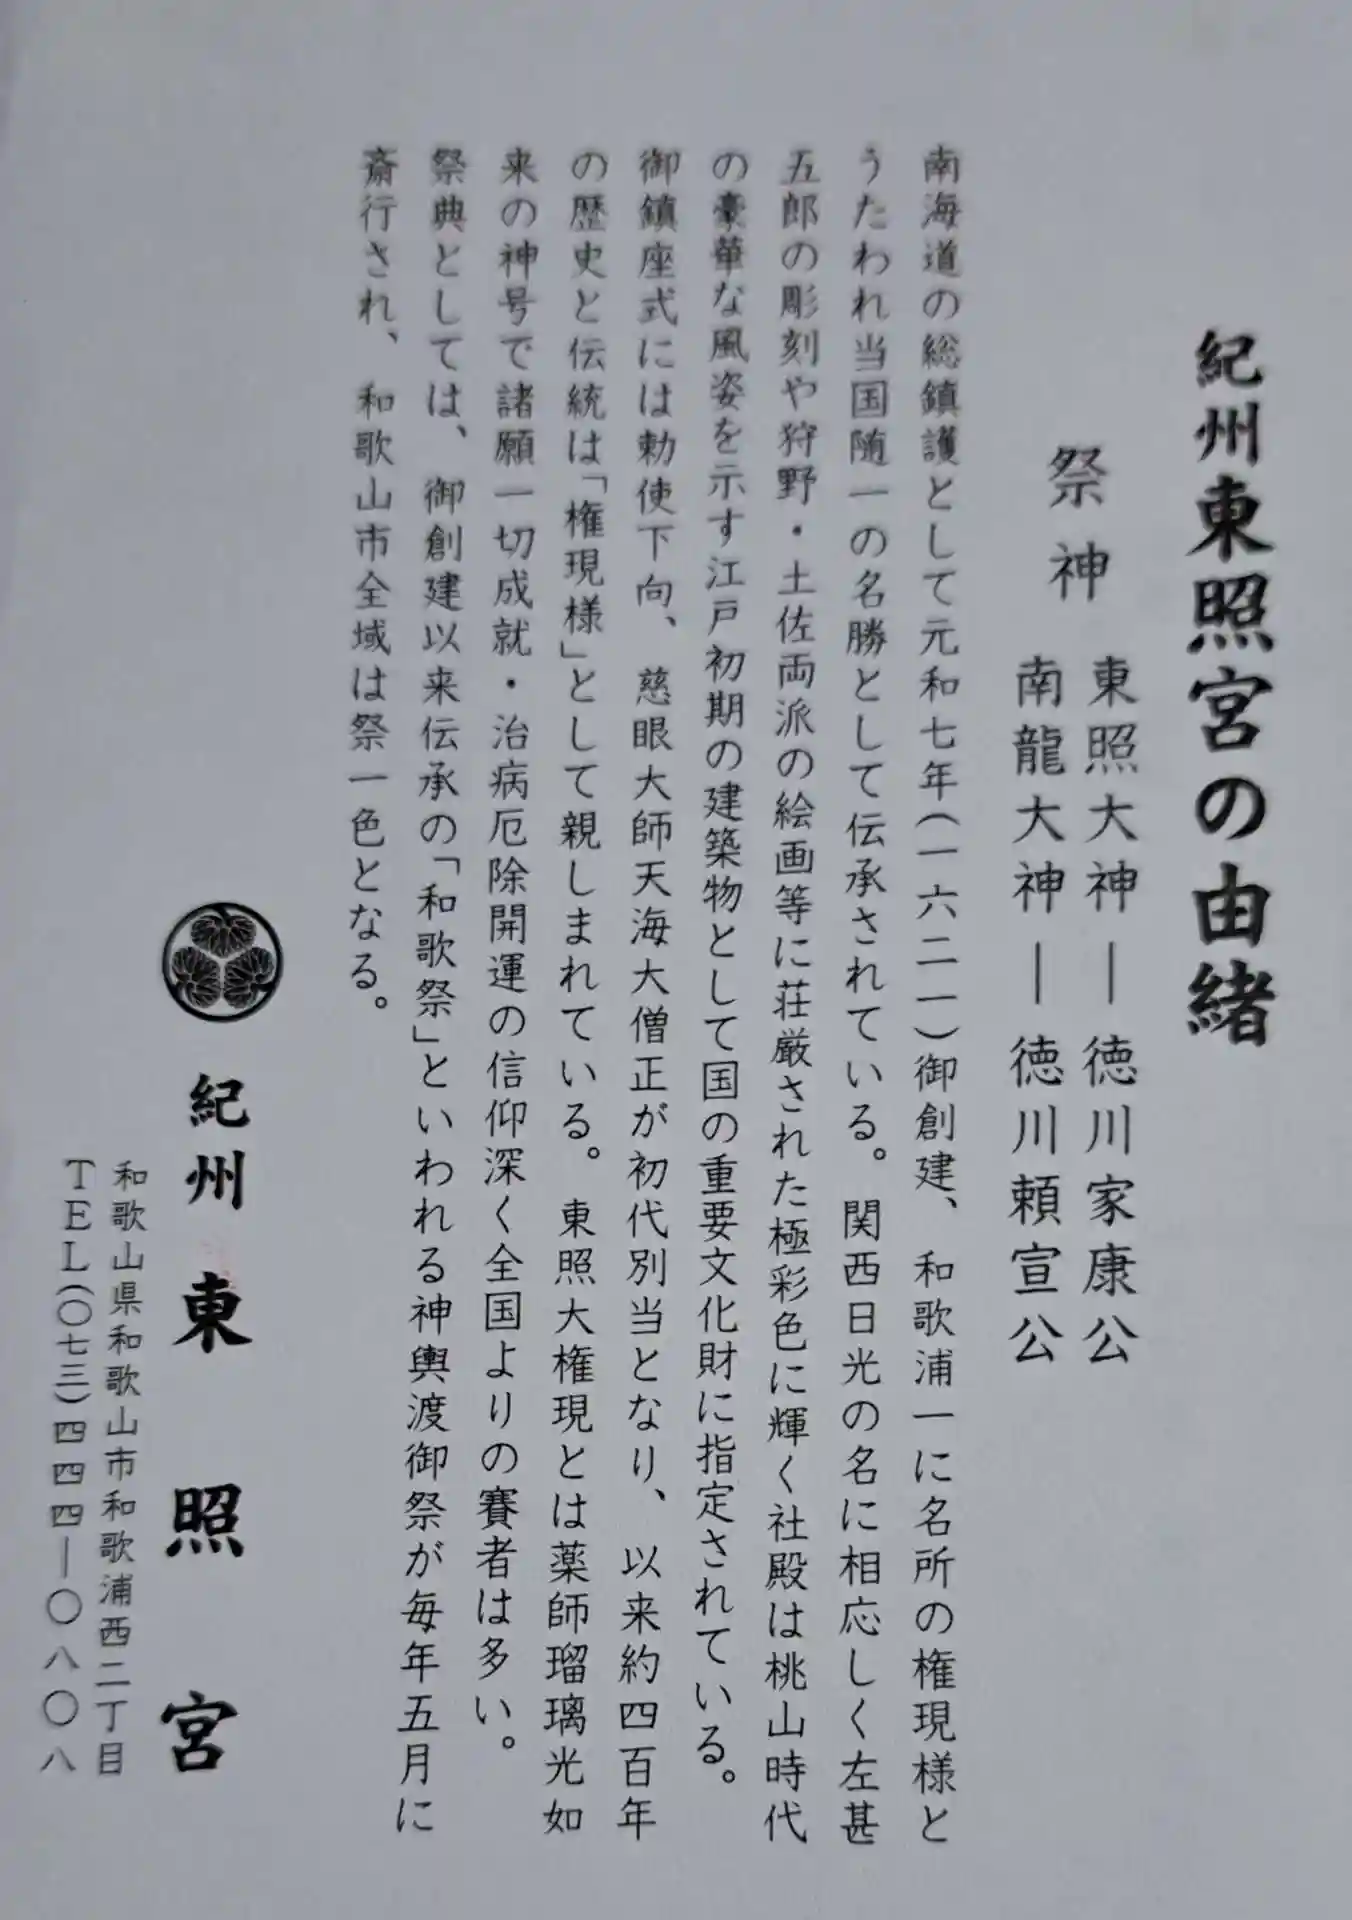 紀州東照宮の由緒
祭神
東照大神―徳川家康公
南龍大神―徳川頼宣公
南海道の総鎮護として元和七年(一六二一)御創建、和歌浦一に名所の権現様と
うたわれ当国随一の名勝として伝承されている。関西日光の名に相応しく左甚
五郎の彫刻や狩野・土佐両派の絵画等に荘厳された極彩色に輝く社殿は桃山時代
の豪華な風姿を示す江戸初期の建築物として国の重要文化財に指定されている。
御鎮座式には勅使下向、慈眼大師天海大僧正が初代別当となり、以来約四百年
の歴史と伝統は「権現様」として親しまれている。東照大権現とは薬師瑠璃光如
来の神号で諸願一切成就・治病厄除開運の信仰深く全国よりの賽者は多い。
祭典としては、御創建以来伝承の「和歌祭」といわれる神輿渡御祭が毎年五月に
斎行され、和歌山市全域は祭一色となる。
紀州東照宮
和歌山県和歌山市和歌浦西二丁目
TEL(〇七三)四四四―〇八〇八